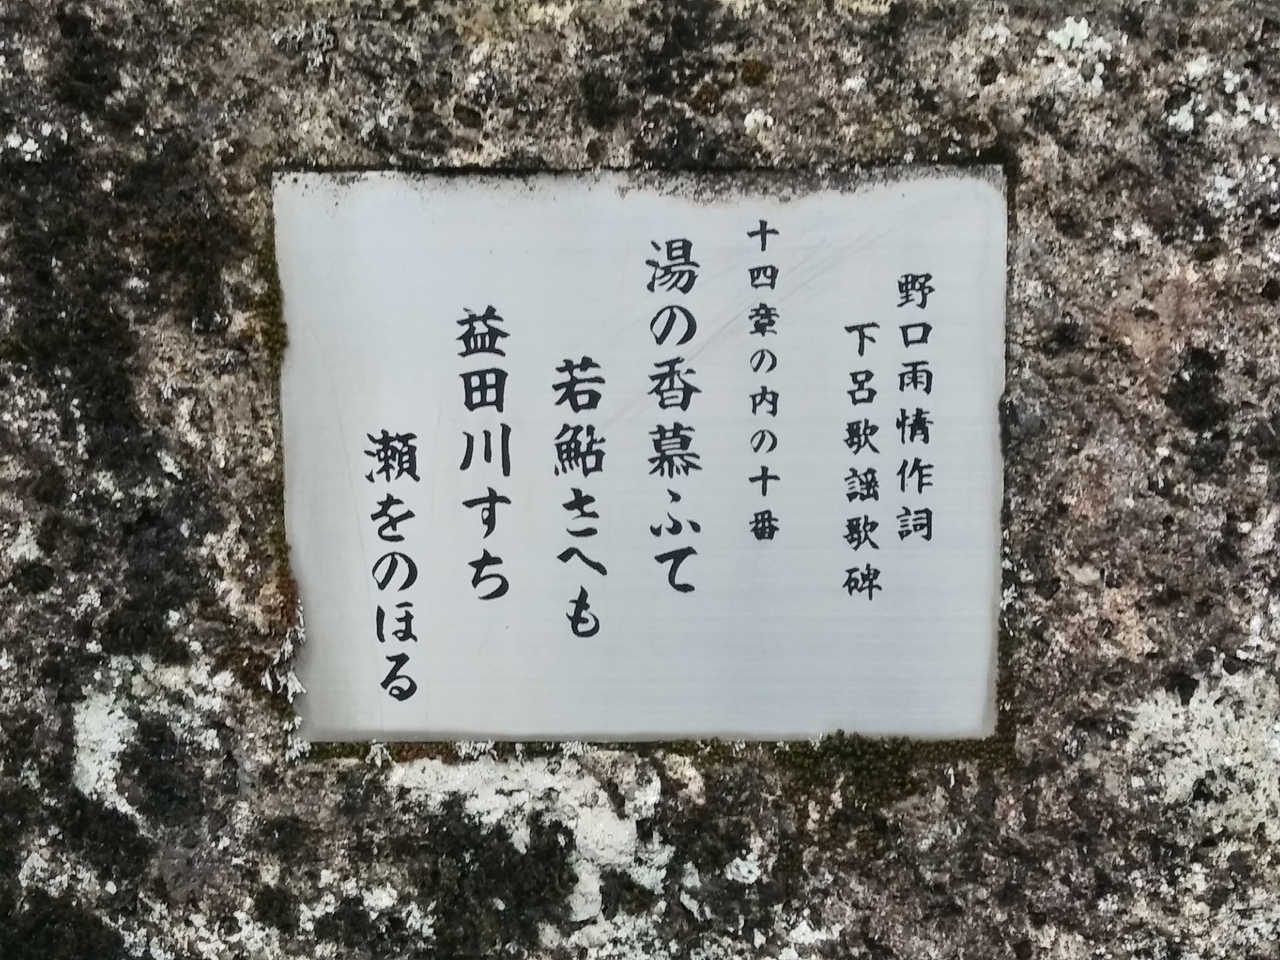 野口雨情作詞
下呂歌謡歌碑
十四章の内の十番
湯の香慕ふて
若鮎さへも
益田川すち
瀬をのほる